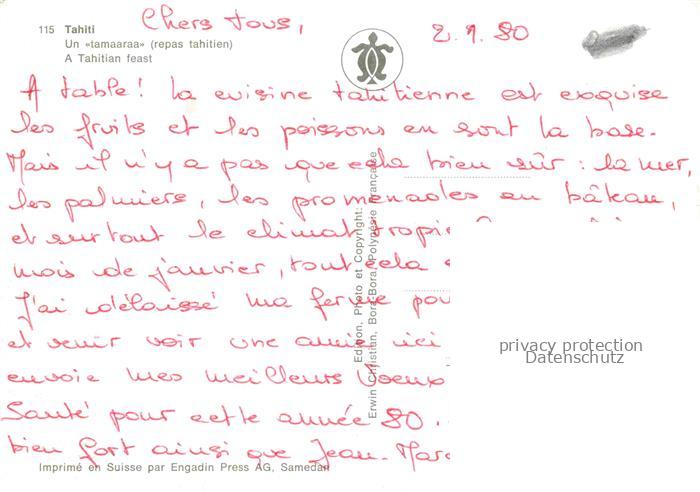 115 Tahiti
Un «tamaaraa» (repas tahitien)
A Tahitian feast
Chers tous,
2.1.80
A table! La cuisine tahitienne est exquise
les fruits et les poissons en sont la base.
Mais il n'y a pas que cela bien sûr : la mer,
les palmiers, les promenades en bâteau,
et surtout le climat tropi
mois de janvier, tout cela
J'ai délaissé ma ferme pou
et venir voir une amie ici
envoie mes meilleurs Voeux
Santé pour cette année 80.
bien fort ainsi que Jean-Marc
Edition, Photo et Copyright:
Erwin Christian, Bora-Bora, Polynésie Française
privacy protection
Datenschutz
Imprimé en Suisse par Engadin Press AG, Samedan